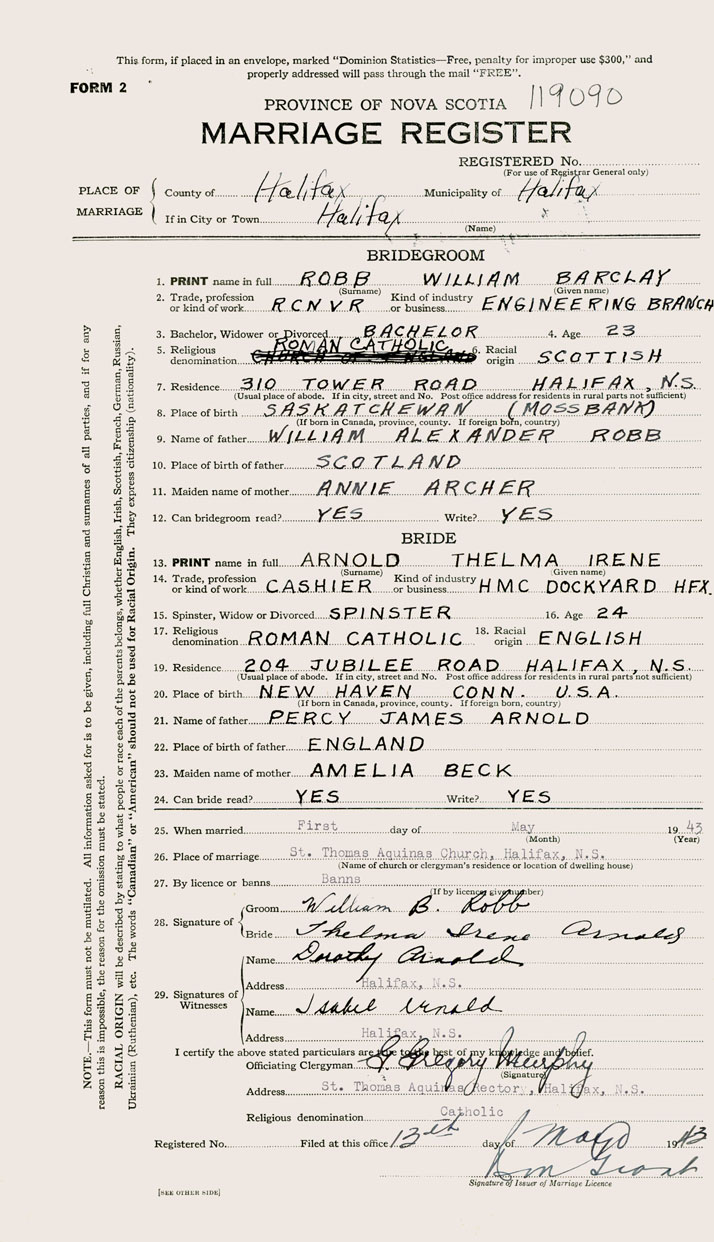 This form, if placed in an envelope, marked "Dominion Statistics—Free, penalty for improper use $300," and
properly addressed will pass through the mail "FREE".
FORM 2
PROVINCE OF NOVA SCOTIA 119090
MARRIAGE REGISTER
REGISTERED No.
(For use of Registrar General only)
PLACE OF MARRIAGE
County of Halifax Municipality of Halifax
If in City or Town Halifax
(Name)
BRIDEGROOM
1. PRINT name in full ROBB WILLIAM BARCLAY
(Surname) (Given name)
2. Trade, profession or kind of work RCNVR Kind of industry or business ENGINEERING BRANCH
3. Bachelor, Widower or Divorced BACHELOR 4. Age 23
5. Religious denomination ROMAN CATHOLIC CHURCH OF ENGLAND 6. Racial origin SCOTTISH
7. Residence 310 TOWER ROAD HALIFAX, N.S.
(Usual place of abode. If in city, street and No. Post office address for residents in rural parts not sufficient)
8. Place of birth SASKATCHEWAN (MOSSBANK)
(If born in Canada, province, county. If foreign born, country)
9. Name of father WILLIAM ALEXANDER ROBB
10. Place of birth of father SCOTLAND
11. Maiden name of mother ANNIE ARCHER
12. Can bridegroom read? YES Write? YES
BRIDE
13. PRINT name in full ARNOLD THELMA IRENE
(Surname) (Given name)
14. Trade, profession or kind of work CASHIER Kind of industry or business HMC DOCKYARD HFX.
15. Spinster, Widow or Divorced SPINSTER 16. Age 24
17. Religious denomination ROMAN CATHOLIC 18. Racial origin ENGLISH
19. Residence 204 JUBILEE ROAD HALIFAX, N.S.
(Usual place of abode. If in city, street and No. Post office address for residents in rural parts not sufficient)
20. Place of birth NEW HAVEN CONN. U.S.A.
(If born in Canada, province, county. If foreign born, country)
21. Name of father PERCY JAMES ARNOLD
22. Place of birth of father ENGLAND
23. Maiden name of mother AMELIA BECK
24. Can bride read? YES Write? YES
25. When married First day of May 1943
(Month) (Year)
26. Place of marriage St. Thomas Aquinas Church, Halifax, N.S.
(Name of church or clergyman's residence or location of dwelling house)
27. By licence or banns Banns
(If by licence give number)
28. Signature of
Groom William B. Robb
Bride Thelma Irene Arnold
29. Signatures of Witnesses
Name Dorothy Arnold
Address Halifax, N.S.
Name Isabel Arnold
Address Halifax, N.S.
I certify the above stated particulars are true to the best of my knowledge and belief.
Officiating Clergyman Gregory Murphy
(Signature)
Address St. Thomas Aquinas Rectory, Halifax, N.S.
Religious denomination Catholic
Registered No. Filed at this office 13th day of May 1943
Signature of Issuer of Marriage Licence
[SEE OTHER SIDE]
NOTE.—This form must not be mutilated. All information asked for is to be given, including full Christian and surnames of all parties, and if for any
reason this is impossible, the reason for the omission must be stated.
RACIAL ORIGIN will be described by stating to what people or race each of the parents belongs, whether English, Irish, Scottish, French, German, Russian,
Ukrainian (Ruthenian), etc. The words "Canadian" or "American" should not be used for Racial Origin. They express citizenship (nationality).